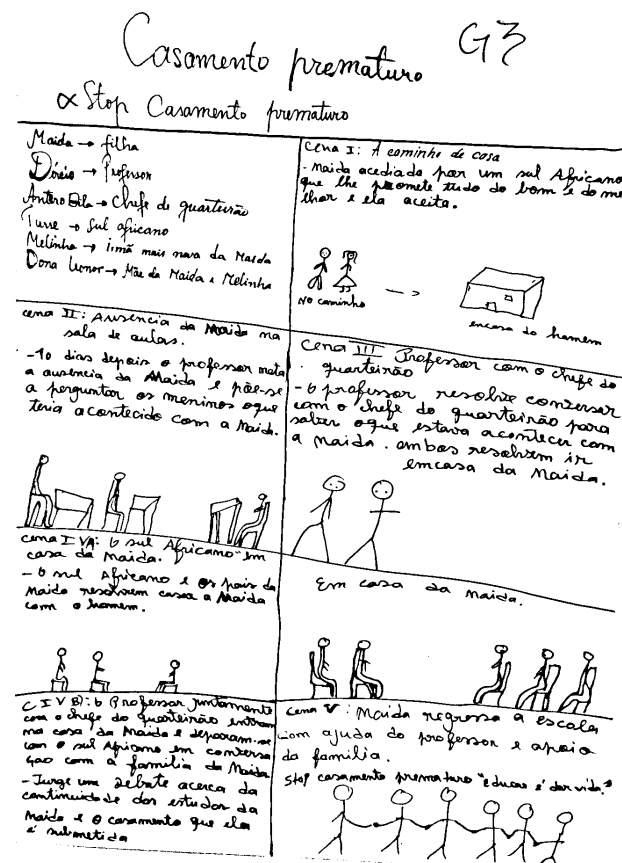 Casamento prematuro G3
∝ Stop Casamento prematuro
Maida → filha
Dércio → Professor
Antero Bila → Chefe do quarteirão
→ Sul africano
Melinha → irmã mais nova da Maida
Dona Leonor → Mãe da Maida e Melinha
Cena I: A caminho de casa
- Maida acediada por um sul Africano
que lhe promete tudo do bom e do me
lhor e ela aceita.
No caminho
encasa do homem
cena II: Ausência da Maida na
sala de aulas.
- 10 dias depois o professor nota
a ausencia da Maida e põe-se
a perguntar os meninos oque
teria acontecido com a Maida.
Cena III Professor com o chefe do
quarteirão
- O professor resolve conversar
com o chefe do quarteirão para
saber oque estava acontecer com
a Maida. ambos resolvem ir
emcasa da Maida.
cena IVA: O sul Africano em
casa da Maida.
- O sul Africano e os pais da
Maida resolvem casar a Maida
com o homem.
Em casa da Maida.
C IV B): O Professor juntamente
com o chefe do quarteirão entram
na casa da Maida e deparam-se
com o sul Africano em conversa
ção com a família da Maida
- Surge um debate acerca da
continuidade dos estudos da
Maida e o casamento que ela
é submetida
cena V: Maida regressa a escola
com ajuda do professor e apoio
da família.
Stop casamento prematuro "educar é dar vida."